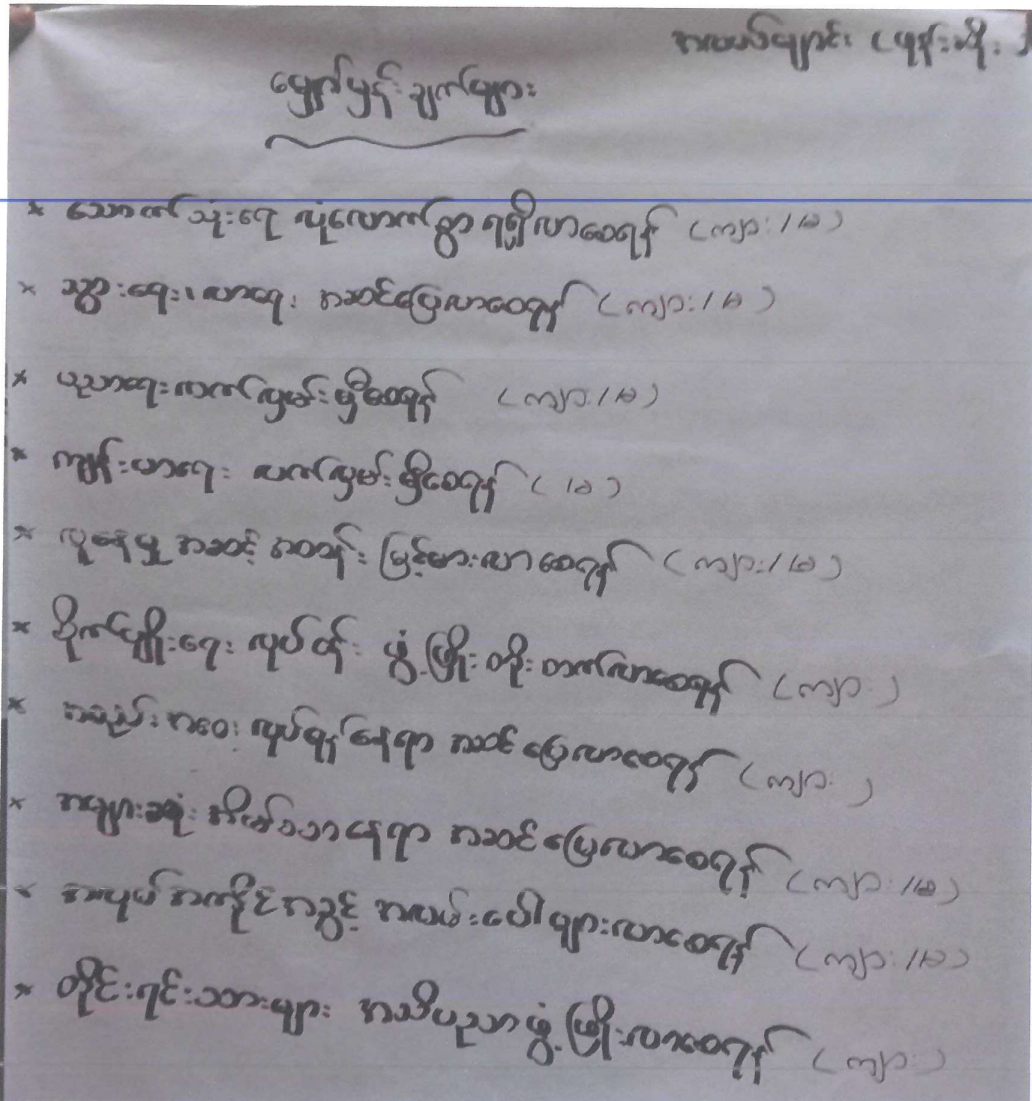 အလယ်ချောင်း (ပုန်းဆိုး)
မျှော်မှန်းချက်များ
× သောက်သုံးရေ လုံလောက်စွာ ရရှိလာစေရန် (ကျား/မ)
× သွားရေး၊ လာရေး အဆင်ပြေလာစေရန် (ကျား/မ)
× ပညာရေးလက်လှမ်းမှီစေရန် (ကျား/မ)
× ကျန်းမာရေး လက်လှမ်းမှီစေရန် ( /မ)
× လူနေမှု အဆင့် အတန်း မြင့်မားလာစေရန် (ကျား/မ)
× စိုက်ပျိုးရေး လုပ်ငန်း ဖွံ့ဖြိုး တိုးတက်လာစေရန် (ကျား )
× အစည်းအဝေး လုပ်ရန်နေရာ အဆင်ပြေလာစေရန် (ကျား )
× အများဆုံး အိမ်သာနေရာ အဆင်ပြေလာစေရန် (ကျား/မ)
× အလုပ်အကိုင်အခွင့် အလမ်းပေါများလာစေရန် (ကျား/မ)
× တိုင်းရင်းသားများ အသိပညာဖွံ့ဖြိုးလာစေရန် (ကျား )